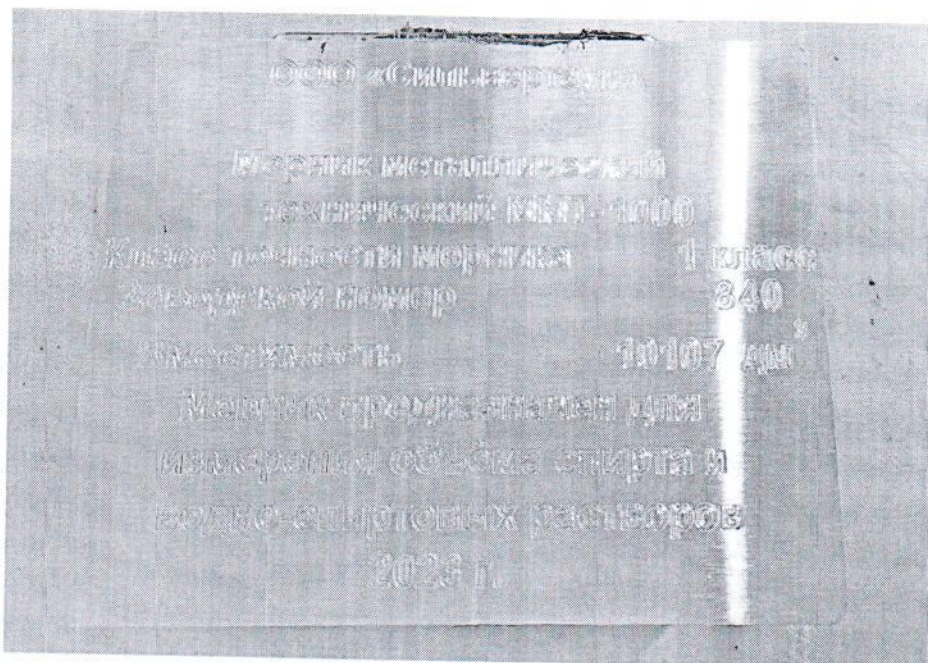 ООО «Сильвертаун»
Мерник металлический
технический ММТ-1000
Класс точности мерника 1 класс
Заводской номер 840
Вместимость 10107 дм³
Мерник предназначен для
измерения объёма спирта и
водно-спиртовых растворов
2023 г.